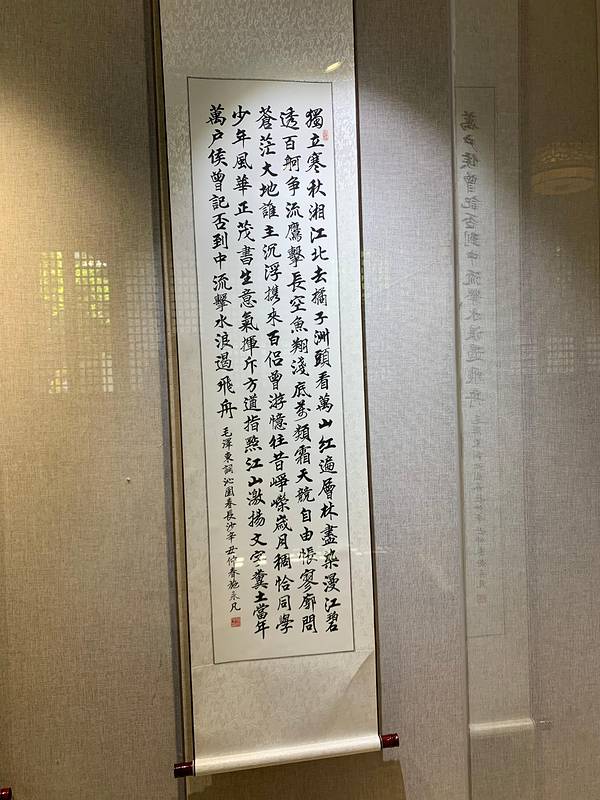 獨立寒秋湘江北去橘子洲頭看萬山红遍層林盡染漫江碧
透百舸争流鷹擊長空魚翔淺底萬類霜天競自由悵寥廓問
蒼茫大地誰主沉浮携來百侣曾游憶往昔崢嶸歲月稠恰同學
少年風華正茂書生意氣揮斥方遒指點江山激揚文字糞土當年
萬户侯曾記否到中流擊水浪遏飛舟
毛澤東詞沁園春長沙辛丑仲春施永凡